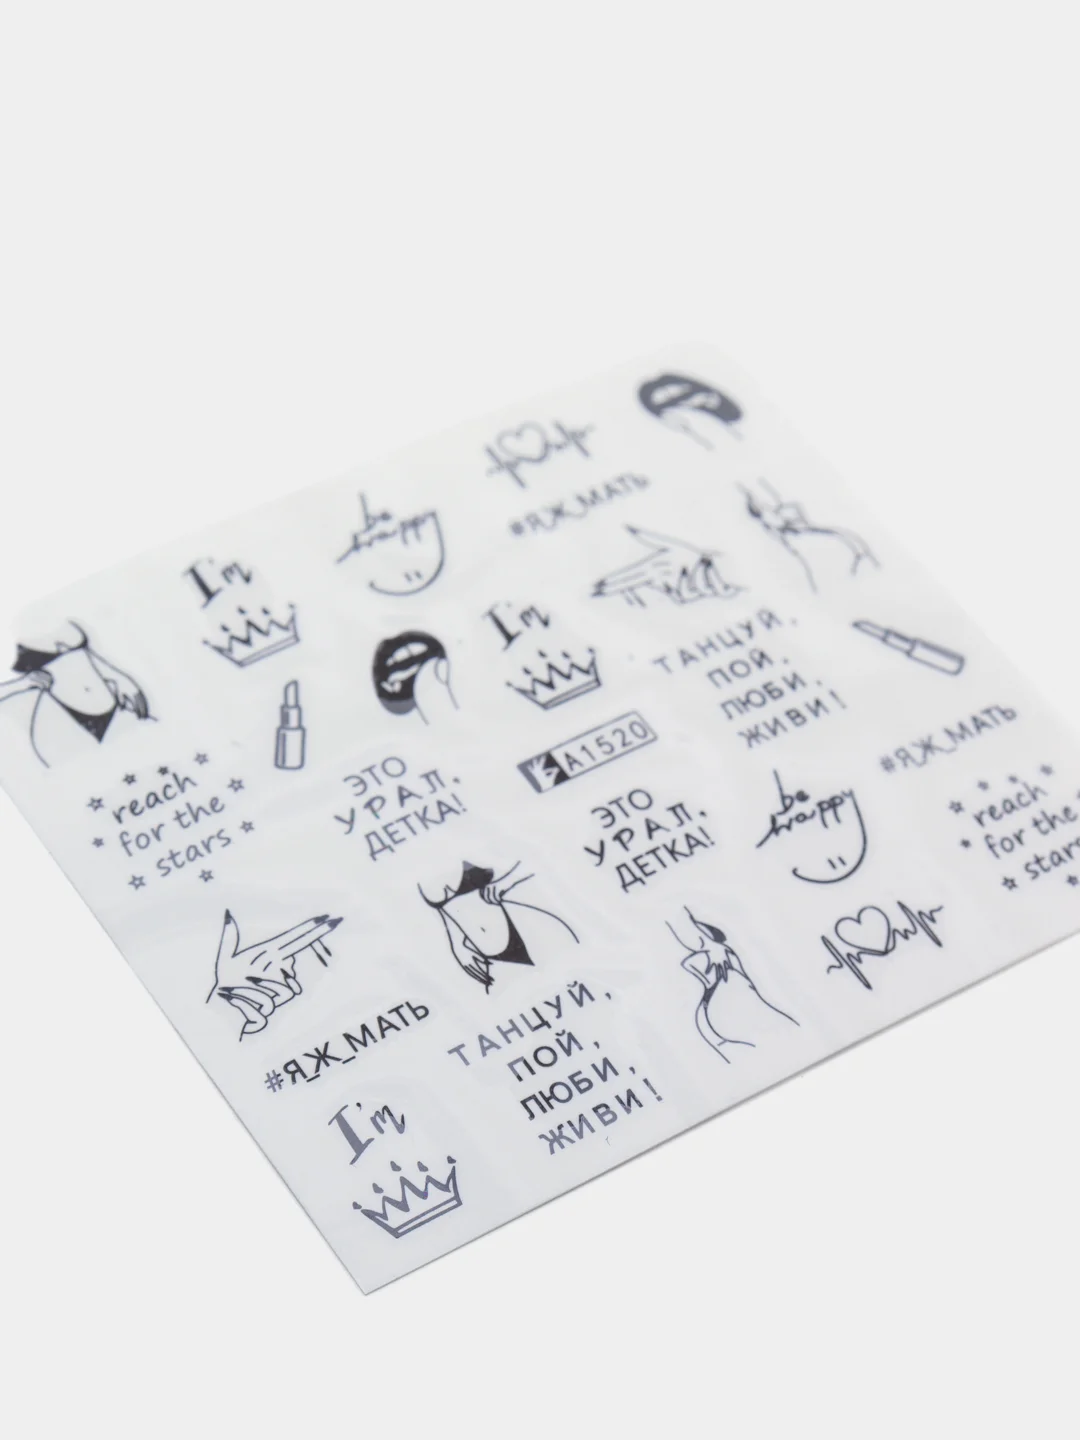 #Я_Ж_МАТЬ
be
happy
I'm
I'm
ТАНЦУЙ,
ПОЙ,
ЛЮБИ,
ЖИВИ!
A1520
#Я_Ж_МАТЬ
reach
for the
stars
ЭТО
УРАЛ,
ДЕТКА!
ЭТО
УРАЛ,
ДЕТКА!
be
happy
reach
for the
stars
#Я_Ж_МАТЬ
ТАНЦУЙ,
ПОЙ,
ЛЮБИ,
ЖИВИ!
I'm